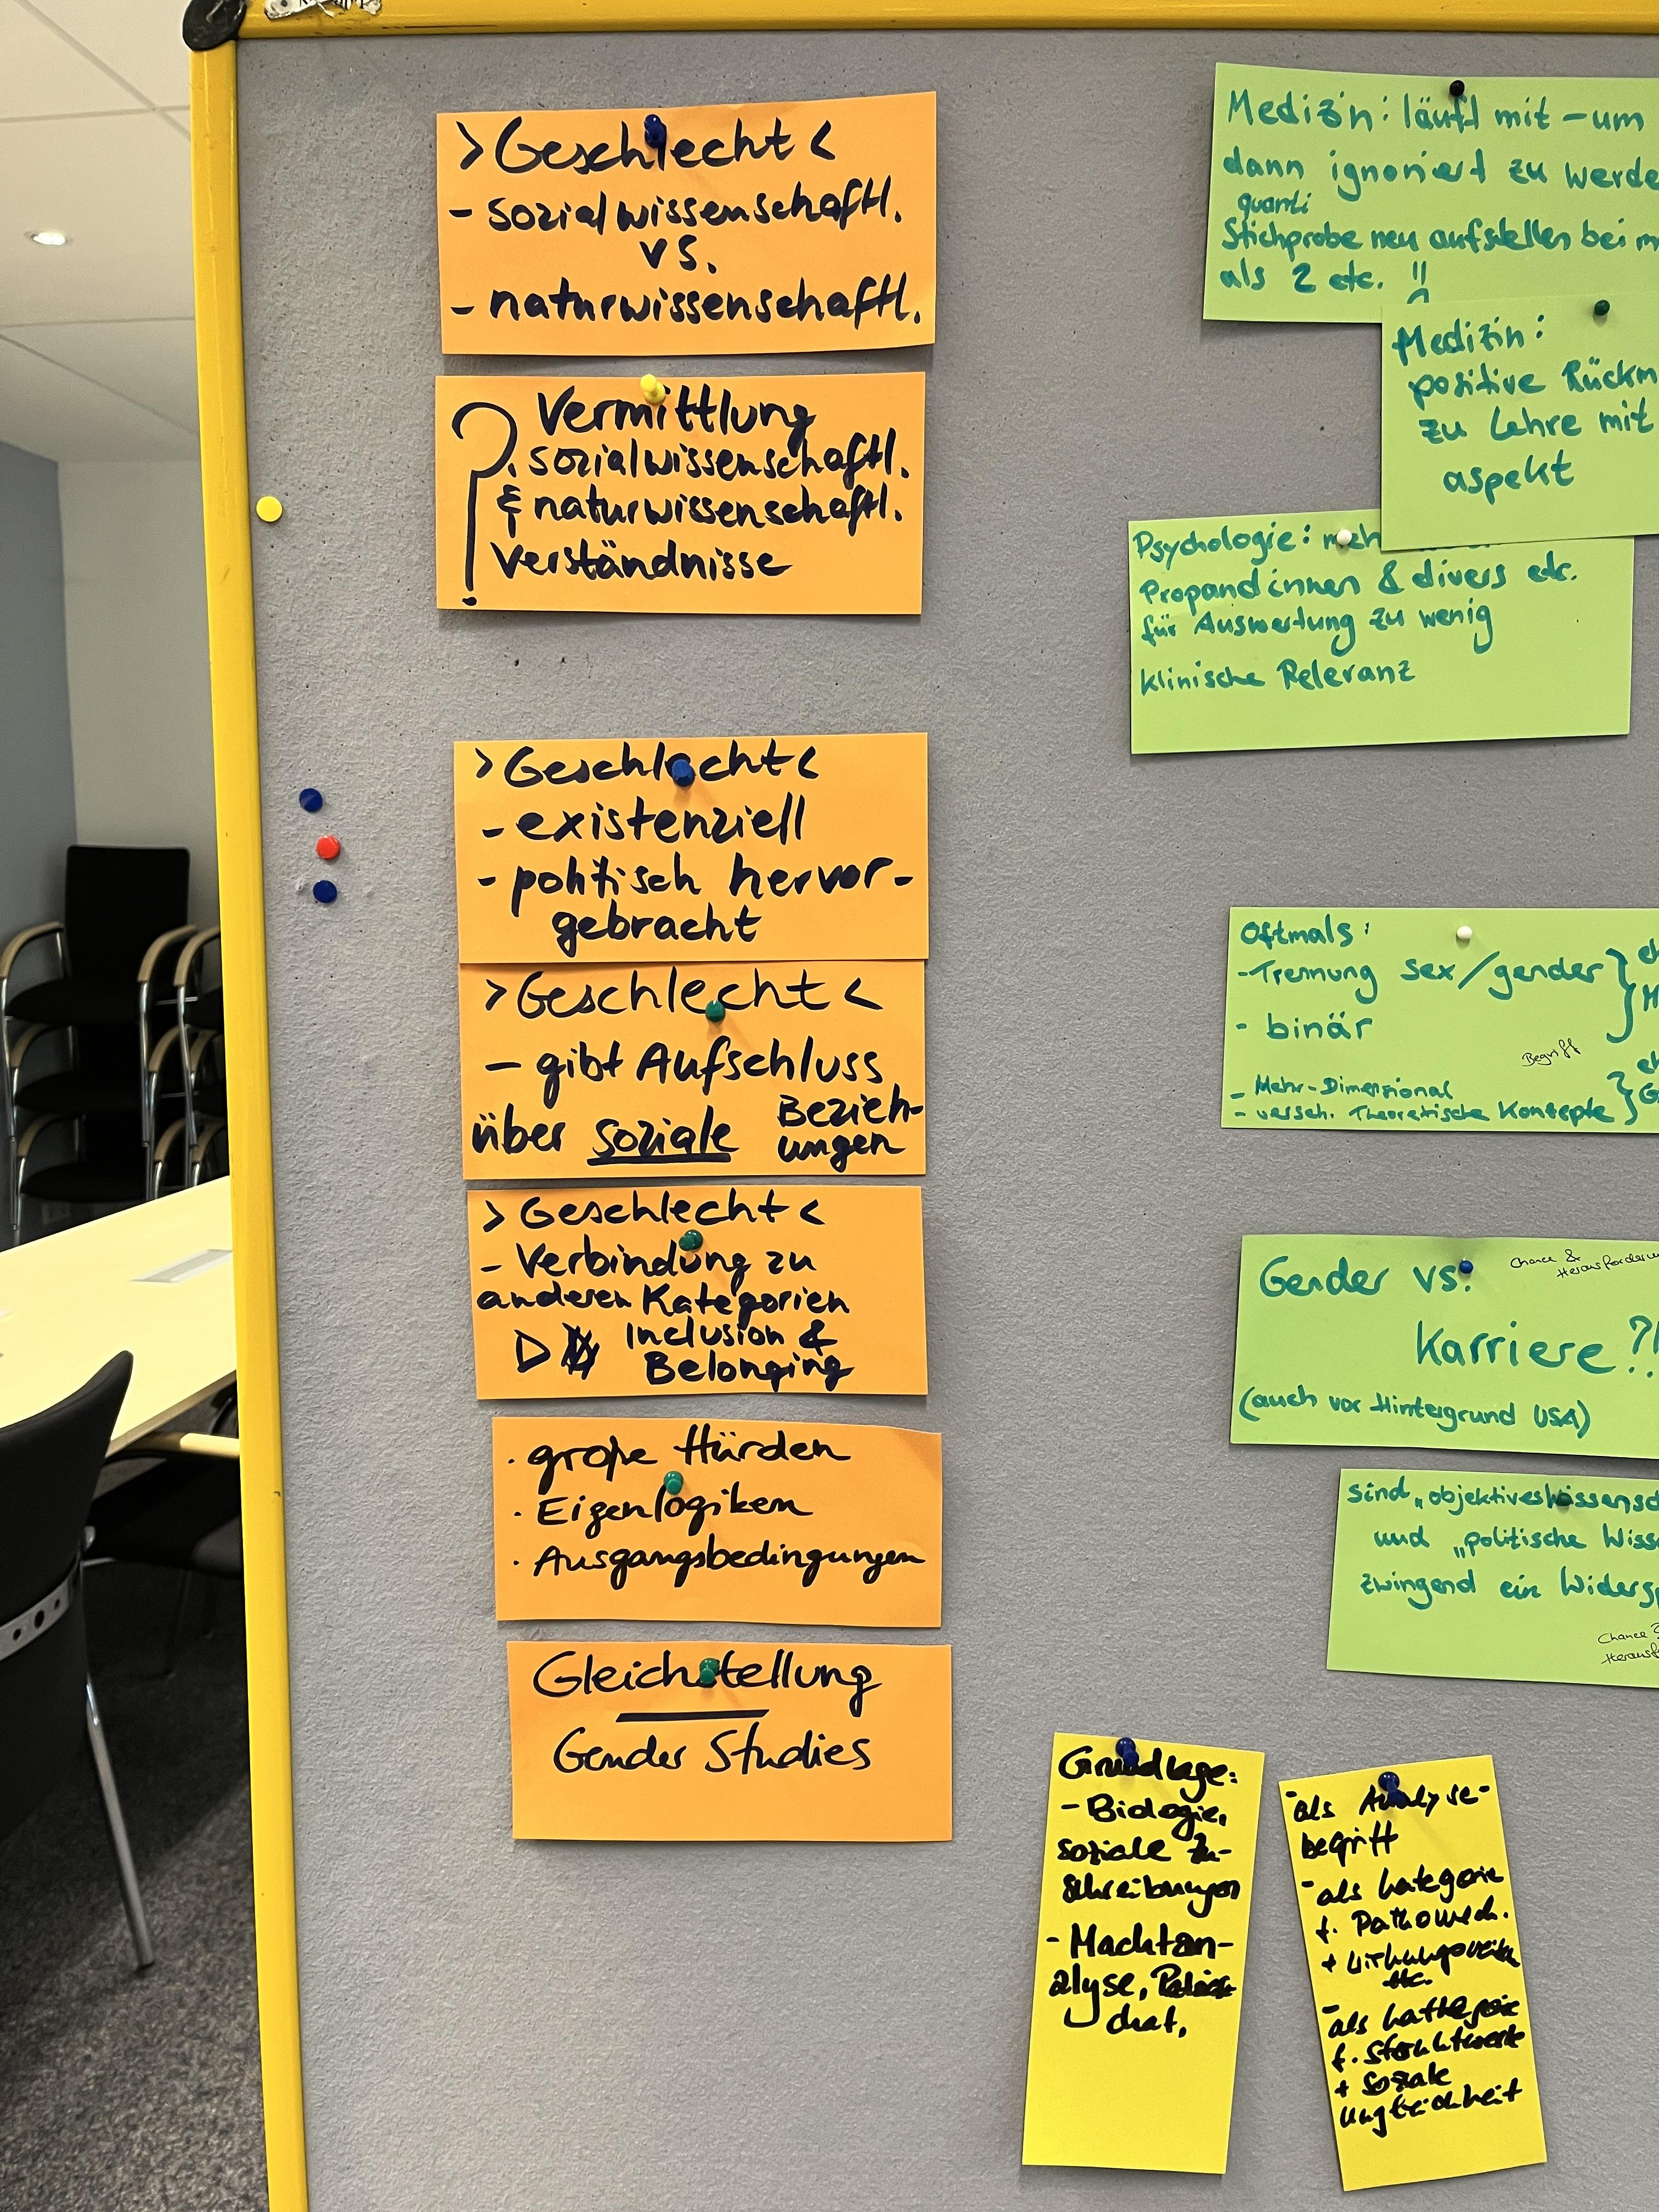 >Geschlecht<
- sozialwissenschaftl.
vs.
- naturwissenschaftl.
? Vermittlung
sozialwissenschaftl.
& naturwissenschaftl.
Verständnisse !
>Geschlecht<
- existenziell
- politisch hervor-
gebracht
>Geschlecht<
- gibt Aufschluss
über soziale Bezieh-
ungen
>Geschlecht<
- Verbindung zu
anderen Kategorien
Inclusion &
Belonging
· große Hürden
· Eigenlogiken
· Ausgangsbedingungen
Gleichstellung
Gender Studies
Medizin: läuft mit - um
dann ignoriert zu werde
quanti
Stichprobe neu aufstellen bei m
als 2 etc. !!
Medizin:
positive Rückm
zu Lehre mit
aspekt
Psychologie: meh
Propandinnen & divers etc.
für Auswertung zu wenig
klinische Relevanz
Oftmals:
- Trennung sex/gender
- binär
Begriff
- Mehr-Dimensional
- versch. Theoretische Konzepte
Gender vs.
Chance &
Herausforderu
Karriere?!
(auch vor Hintergrund USA)
Sind „objektives Wissensc
und „politische Wiss
zwingend ein Widersp
Chance &
Herausf
Grundlage:
- Biologie,
soziale Zu-
schreibungen
- Machtan-
alyse, Patriar-
chat,
- als Analyse-
begriff
- als Kategorie
f. Pathomech.
etc.
- als Kategorie
f.
+ soziale
Ungleichheit